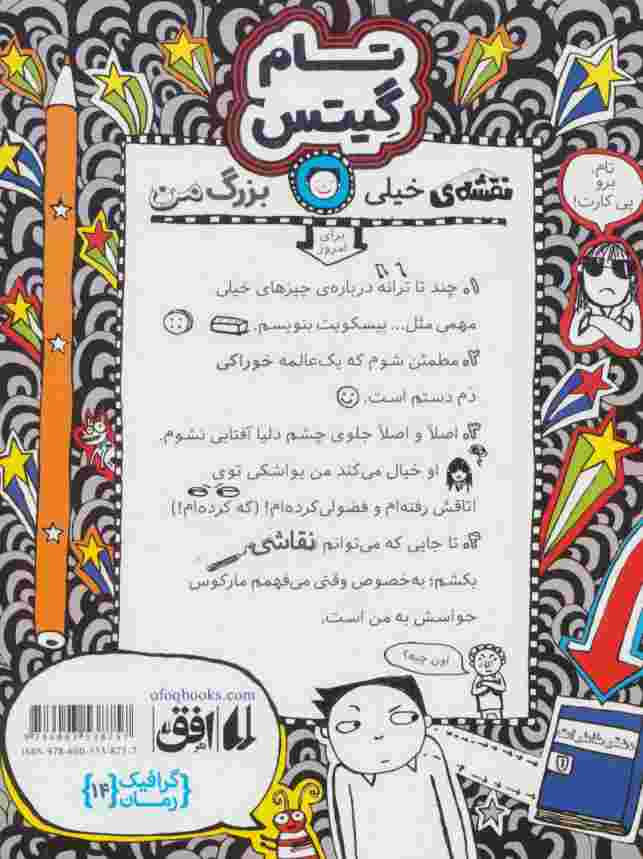 تام
گیتس
نقشه‌ی خیلی بزرگ من
برای
امروز
تام،
برو
پی کارت!
۱. چند تا ترانه درباره‌ی چیزهای خیلی
مهمی مثل... بیسکویت بنویسم.
۲. مطمئن شوم که یک‌عالمه خوراکی
دَم دستم است.
۳. اصلاً و اصلاً جلوی چشم دلیا آفتابی نشوم.
او خیال می‌کند من یواشکی توی
اتاقش رفته‌ام و فضولی کرده‌ام! (که کرده‌ام!)
۴. تا جایی که می‌توانم نقاشی
بکشم؛ به‌خصوص وقتی می‌فهمم مارکوس
حواسش به من است.
اون چیه؟
دفتر خاطرات
ofoqbooks.com
افق
گرافیک
رمان
{۱۴}